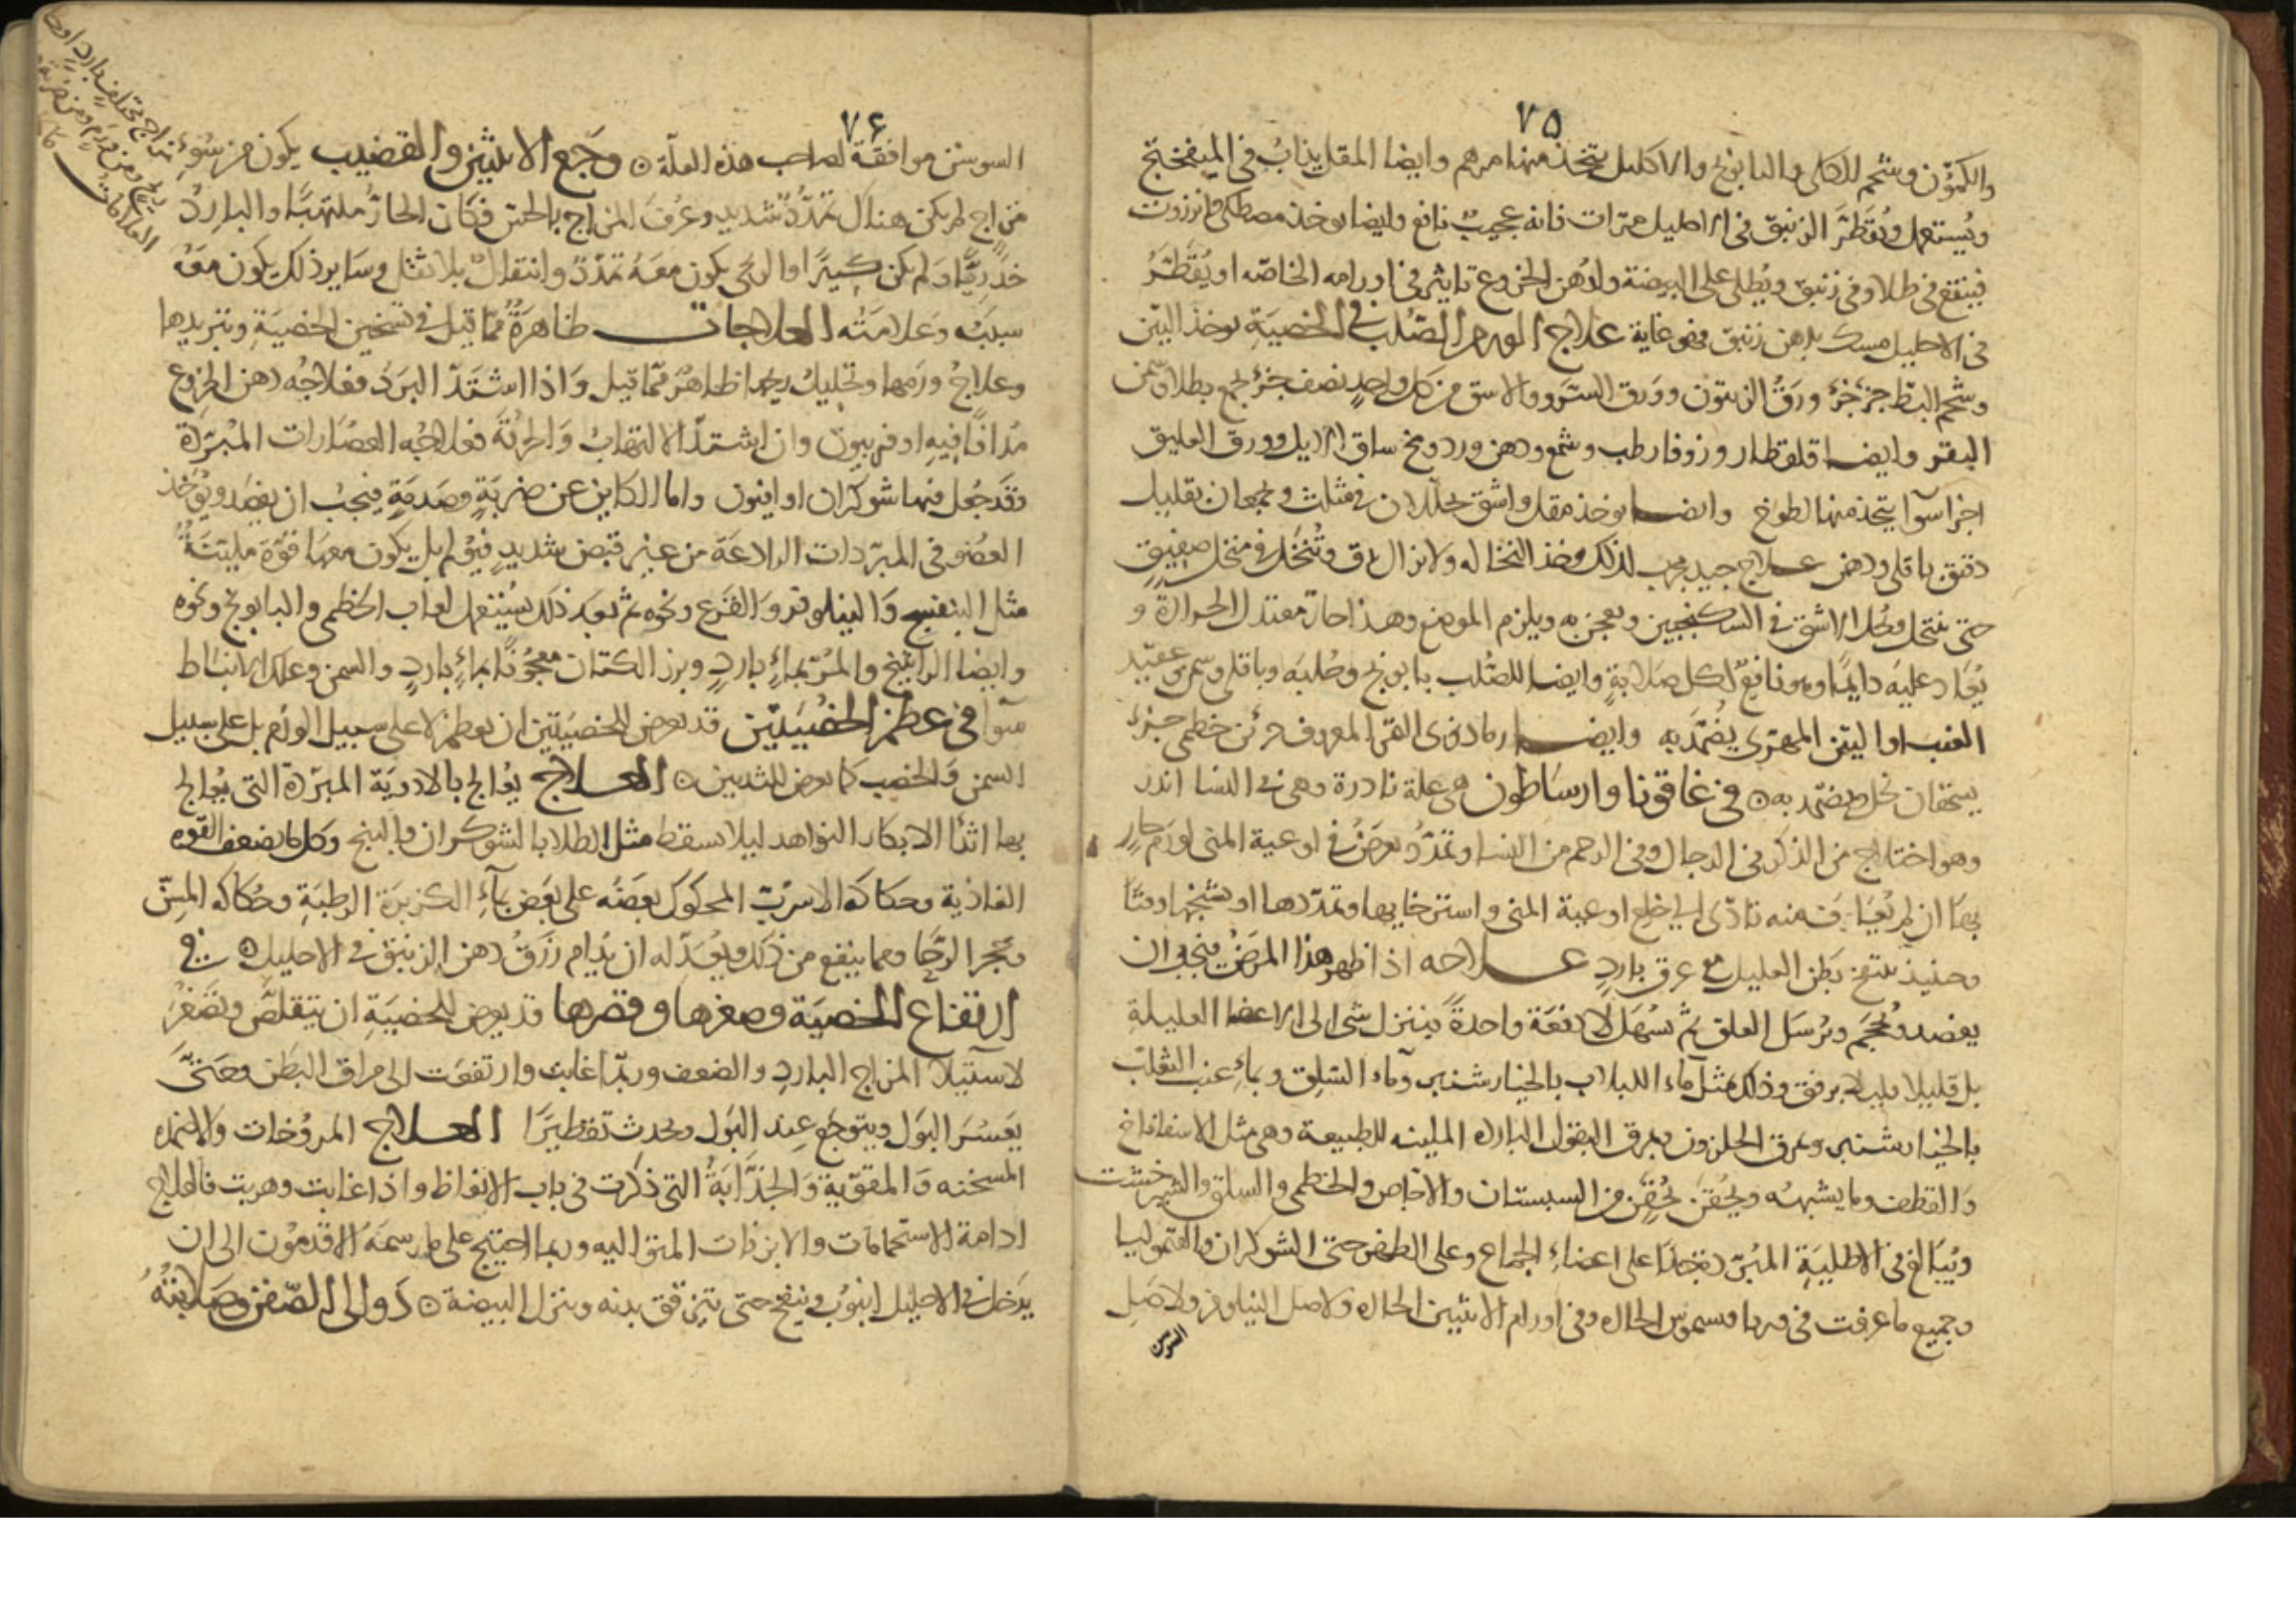 ٧٥
والكمون وشحم الكلى والبابونج والاكليل يتخذ منها مرهم وايضا المقل يذاب في الميفختج
ويستعمل ويقطر الزنبق في الاحليل مرات فانه عجيب نافع وايضا يوخذ مصطكى وانزروت
فينقع في طلا وفي زنبق ويطلى على البيضة ولدهن الخروع تاثير في اورامه الخاصه او يقطر
في الاحليل مسك بدهن زنبق فهو غاية علاج الورم الصلب في الخصية يوخذ التين
وشحم البط جزء جزء ورق الزيتون وورق السرو والاشق من كل واحد نصف جزء يجمع بطلا وسمن
البقر وايضا قلقطار وزوفا رطب وشمع ودهن ورد ومخ ساق الايل وورق العليق
اجزا سوآ يتخذ منها لطوخ وايضا يوخذ مقل واشق يحللان في مثلث ويجمعان بقليل
دقيق باقلى ودهن علاج جيد مجرب لذلك وخذ النخاله ولا تزال تدق وتنخل في منخل صفيق
حتى تنتخل ويحل الاشق في السكنجبين ويعجن به ويلزم الموضع وهذا حار معتدل الحرارة و
يعاد عليه دايما وهو نافع لكل صلابة وايضا للصلب بابونج وحلبه وباقلى وسمن وعقيد
العنب او التين المهرى يضمد به وايضا رماد نوى التمر المعروف جزئين خطمى جزء
يسحقان بخل ويضمد به ۞ في غاقونا وارساطون هي علة نادرة وهى في النسا اندر
وهو اختلاج من الذكر في الرجال وفي الرحم من النسا وتمدد يعرض في اوعية المنى لورم حار
بها ان لم يعاف منه تادى الى خلع اوعية المنى واسترخايها وتمددها او تشنجها وتتا
وحنيذ ينتفخ بطن العليل مع عرق بارد علاجه اذا ظهر هذا المرض فيجب ان
يفصد ويحجم ويرسل العلق ثم يسهل لا دفعة واحدة فينزل شى الى الاعضا العليلة
بل قليلا قليلا برفق وذلك مثل ماء اللبلاب بالخيارشنبر وماء السلق وبماء عنب الثعلب
بالخيارشنبر ومرق الحلزون ومرق البقول البارده المليينه للطبيعة وهى مثل الاسفاناخ
والقطف وما يشبهه ويحقن بحقن من السبستان والاجاص والخطمى والسلق والشيرخشت
ويبالغ في الاطلية المبردة جدا على اعضاء الجماع وعلى الظهر حتى الشوكران والقيموليا
وجميع ما عرفت في فريافسموس الحار وفي اورام الانثيين الحاره ولاصل النيلوفر ولاصل
السوسن
٧٦
السوسن موافقة لصاحب هذه العلة ۞ وجع الانثيين والقضيب يكون من سوء
مزاج مختلف بارد او
ريح ومن ورم ومن ضربة
العلامات
مزاج لم يكن هناك تمدد شديد وعرف المزاج بالحس فكان الحار ملتهبا والبارد
خدريا ولم يكن كبيرا او الريحى يكون معه تمدد وانتقال بلا ثقل وساير ذلك يكون معه
سببه وعلامته العلاجات ظاهرة مما قيل في تسخين الخصية وتبريدها
وعلاج ورمها وتحليل ريحها ظاهر مما قيل واذا اشتد البرد فعلاجه دهن الخروع
مدافا فيه افربيون وان اشتد الالتهاب والحرقة فعلاجه العصارات المبردة
وقد جعل فيها شوكران او افيون واما الكاين عن ضربة وصدمة فيجب ان يفصد ويوخذ
العضو في المبردات الرادعة من غير قبض شديد فيولم بل يكون معها قوة ملينة
مثل البنفسج والنيلوفر والقرع ونحوه ثم بعد ذلك يستعمل لعاب الخطمى والبابونج ونحوه
وايضا الراتينج والمر بماء بارد وبزر الكتان معجونا بماء بارد والسمن وعلك الانباط
سوآ في عظم الخصيتين قد يعرض للخصيتين ان تعظم لا على سبيل الورم بل على سبيل
السمن والخصب كما يعرض للثديين ۞ العلاج يعالج بالادوية المبردة التى يعالج
بها اثدا الابكار النواهد ليلا يسقط مثل الطلا بالشوكران والبنج وكل ما يضعف القوه
الغاذية وحكاكة الاسرب المحكوك بعضه على بعض بماء الكزبرة الرطبة وحكاكه المسن
وحجر الرحا ومما ينفع من ذلك ويعد له ان يدام زرق دهن الزنبق في الاحليل ۞ في
ارتفاع الخصية وصغرها وقصرها قد يعرض للخصية ان يتقلص ويصغر
لاستيلا المزاج البارد والضعف وربما غابت وارتفعت الى مراق البطن وحتى
يعسر البول ويتوجع عند البول ويحدث تقطيرا العلاج المروخات والاضمده
المسخنه والمقوية والجذابة التى ذكرت في باب الانعاظ واذا غابت وهربت فالعلاج
ادامة الاستحمامات والابزنات المتواليه وربما احتيج على ما رسمه الاقدمون الى ان
يدخل في الاحليل انبوب وينفخ حتى يترقق بدنه وينزل البيضة ۞ دوالى الصفن وصلابته